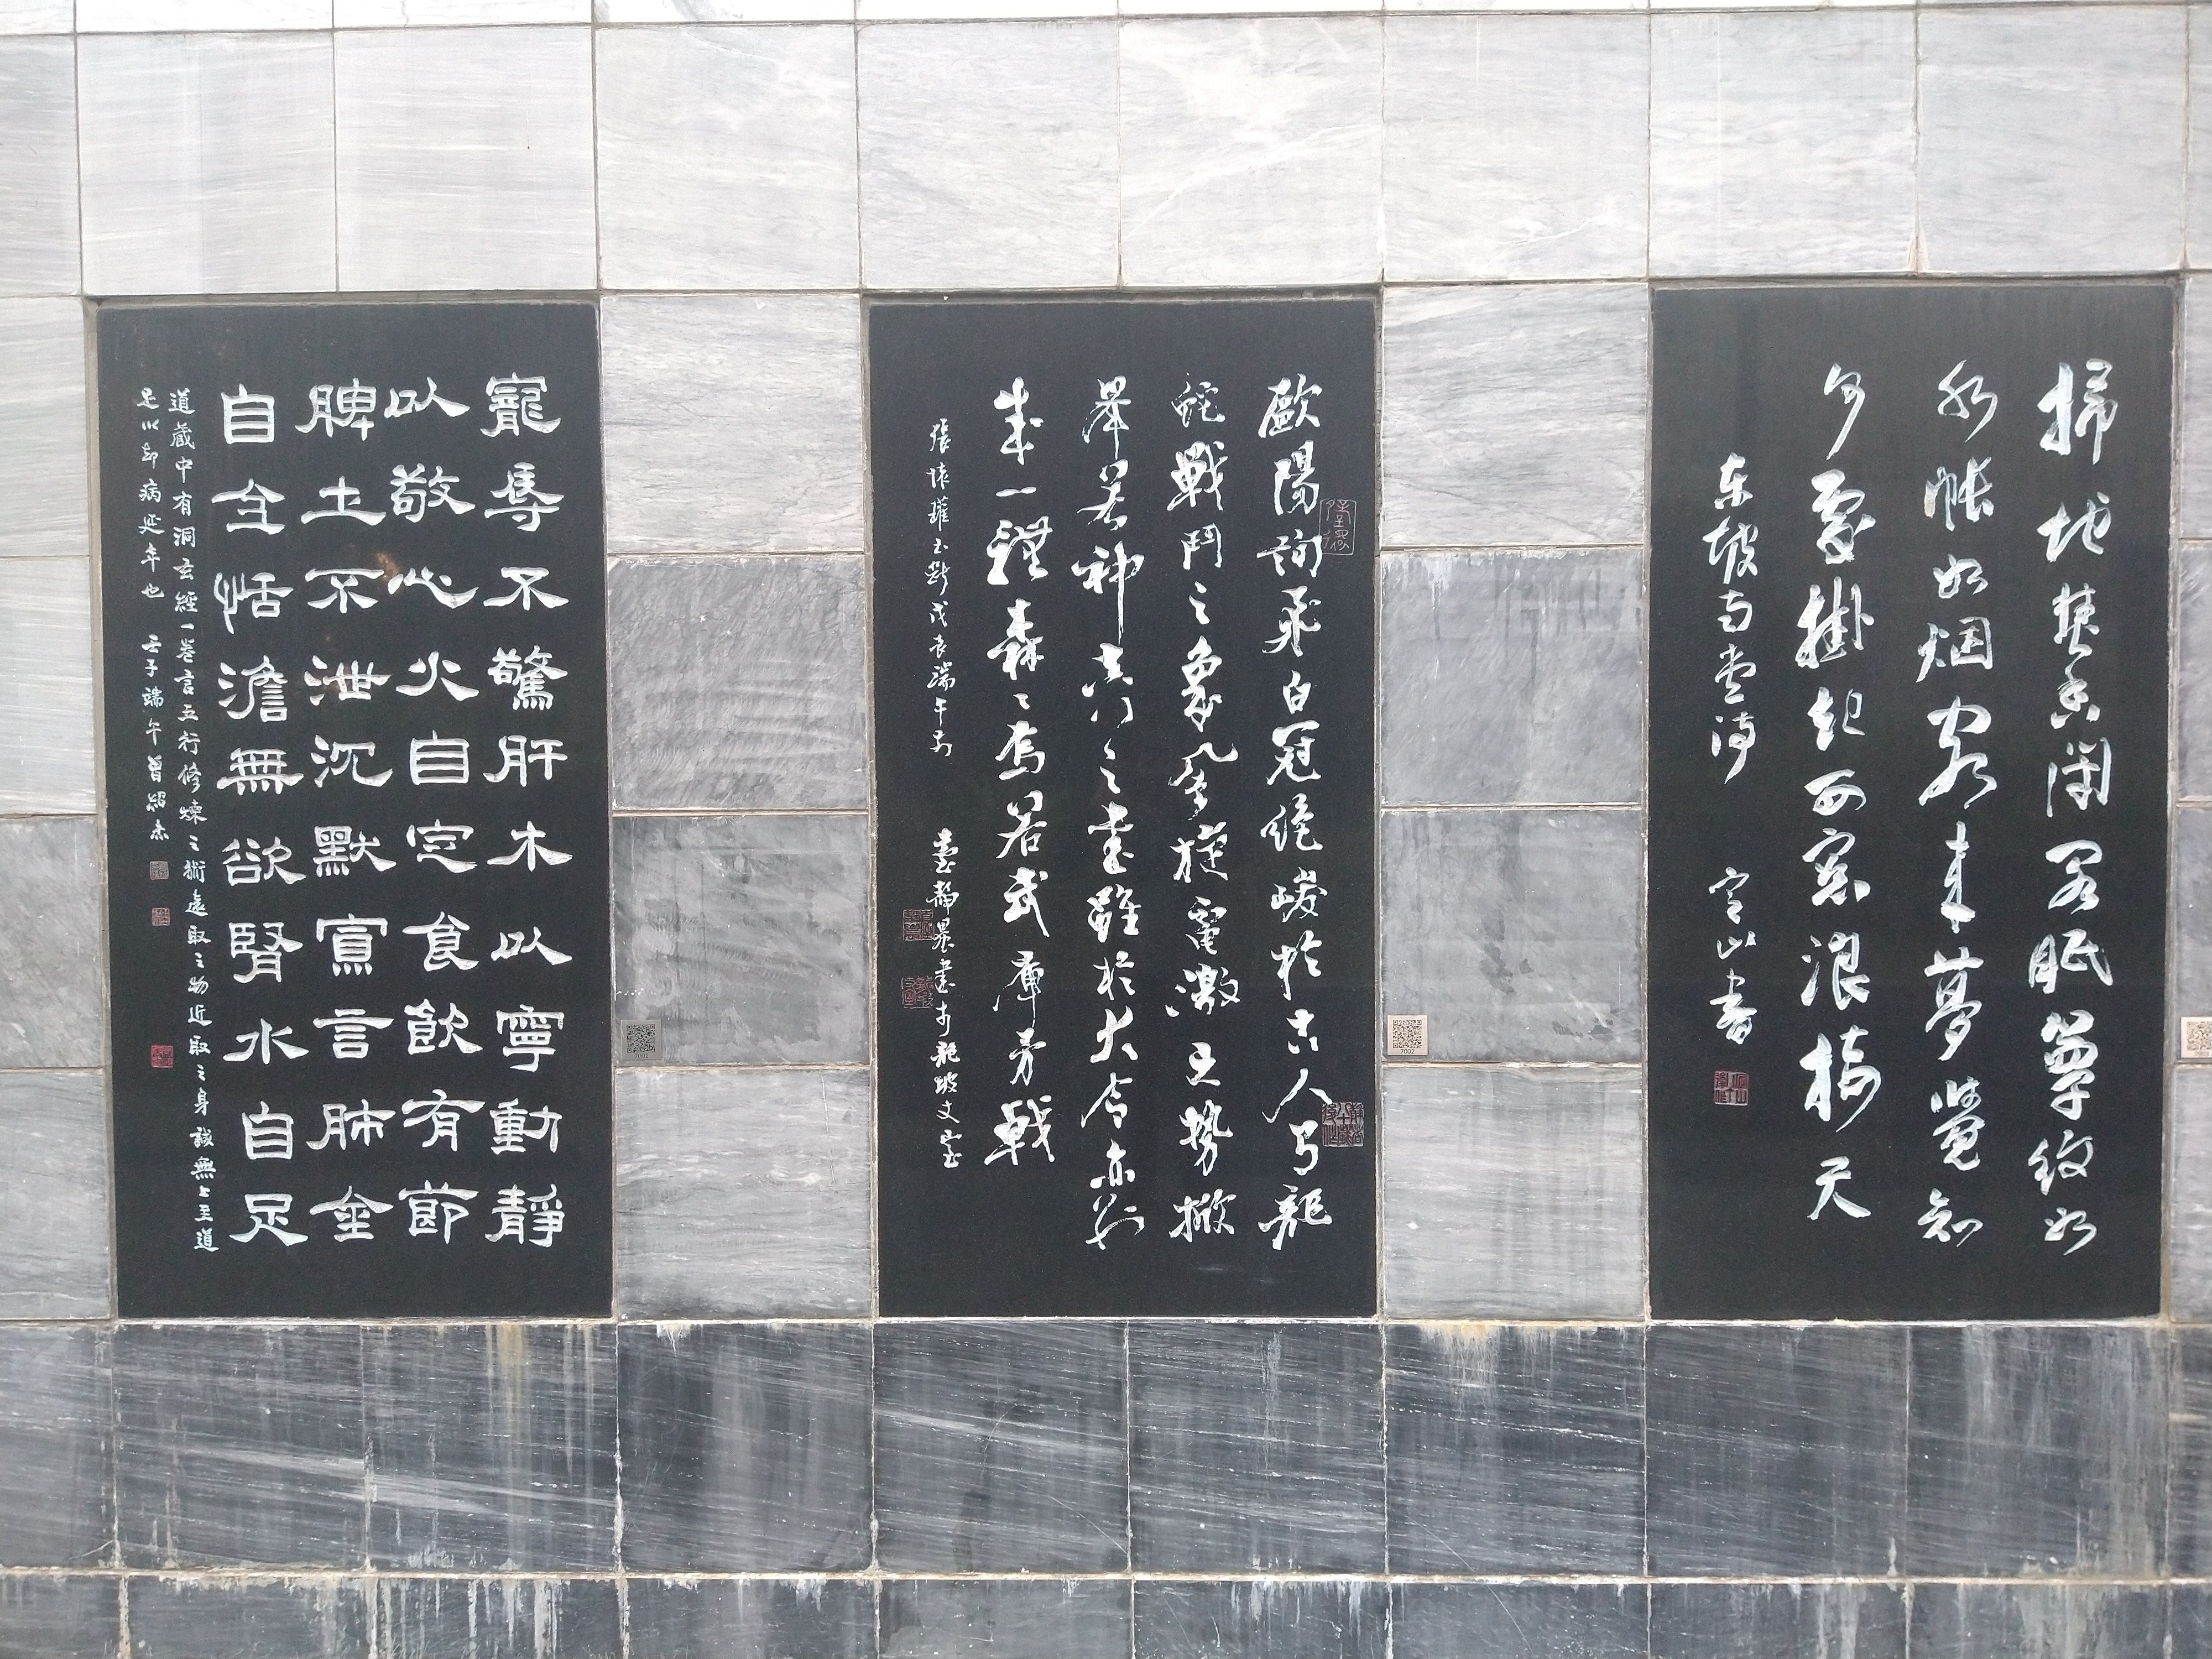 掃地焚香閉閣眠簟紋如
水帳如烟客來夢覺知
何處掛起西窓浪接天
东坡南堂诗
歐陽詢飛白冠絶峻於古人有龍
蛇戰鬥之象
風旋電激
掀
舉若神真行之書雖於大令亦別
成一體森〻焉若武庫矛戟
張懷瓘書斷戊辰端午前
臺靜農書於龍坡丈室
寵辱不驚肝木以寧動靜
以敬心火自定食飲有節
脾土不泄沉默寡言肺金
自全恬澹無欲腎水自足
道藏中有洞玄經一卷言五行修煉之術遠取之物近取之身誠無上至道
足以却病延年也 壬子端午曾紹杰
7001
7002